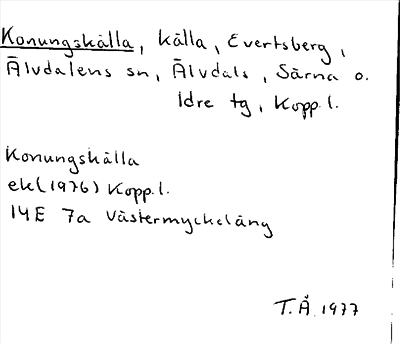 Konungskälla, källa, Evertsberg,
Älvdalens sn, Älvdals, Särna o.
Idre tg, Kopp. l.
Konungskälla
ek (1976) Kopp. l.
14E 7a Västermyckeläng
T.Å. 1977